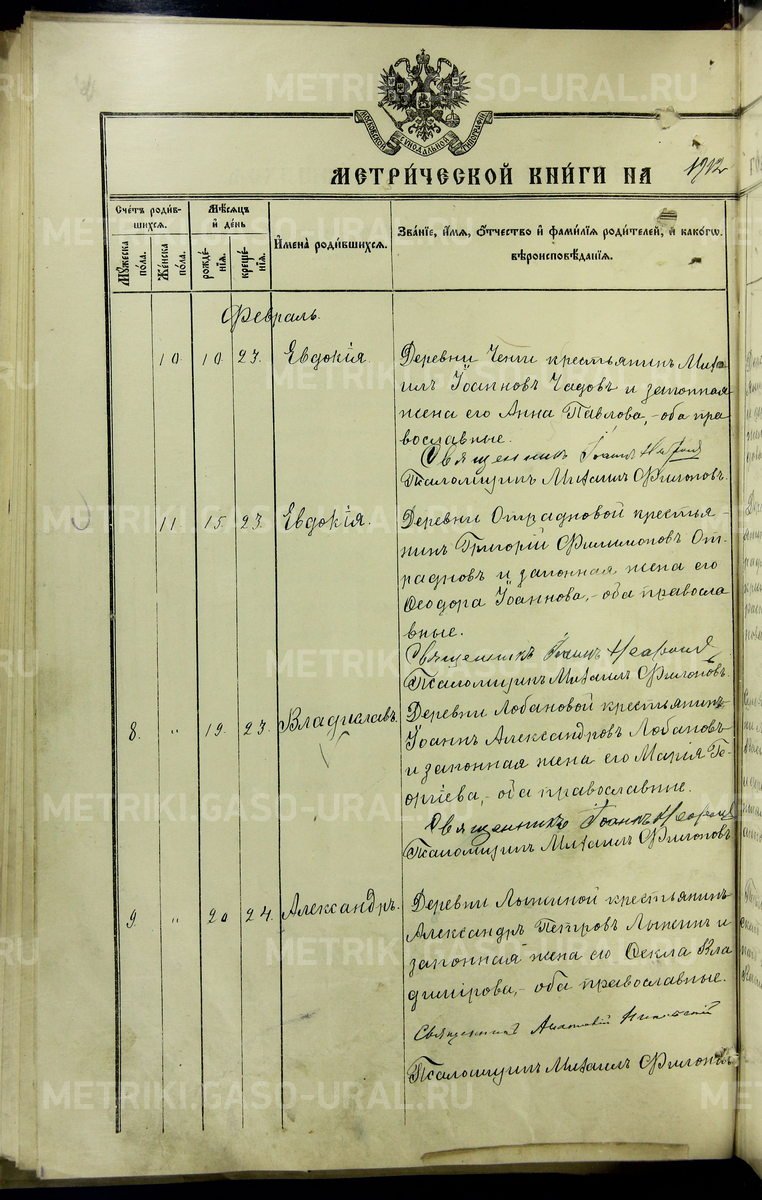 МОСКОВСКОЙ СѴНОДАЛЬНОЙ ТИПОГРАФІИ
МЕТРИ́ЧЕСКОЙ КНИ́ГИ НА 1912
Сче́тъ роди́вшихся.
Мѣ́сяцъ и҆ де́нь
И҆мена̀ роди́вшихся.
Зва́нїе, и҆́мѧ, ѻ҆́тчество и҆ фами́лїѧ роди́телей, и҆ како́гѡ вѣроисповѣ́данїѧ.
Мꙋ́жеска по́ла.
Же́нска по́ла.
рожде́нїѧ.
креще́нїѧ.
Февраль.
10 10 23. Евдокія. Деревни Ченги крестьянинъ Миха
илъ Іоанновъ Чадовъ и законная
жена его Анна Павлова, - оба пра
вославные.
Священникъ Іоаннъ
Псаломщикъ Михаилъ Филоповъ.
11. 15 23. Евдокія. Деревни Отрадновой крестья-
нинъ Григорій Филимоновъ От
радновъ и законная жена его
Ѳеодора Іоаннова, - оба правосла
вные.
Священникъ Іоаннъ
Псаломщикъ Михаилъ Филоповъ.
8. " 19. 23. Владиславъ. Деревни Лобановой крестьянинъ
Іоаннъ Александровъ Лобановъ
и законная жена его Марія Ге-
оргіева, - оба православные.
Священникъ Іоаннъ
Псаломщикъ Михаилъ Филоповъ
9. " 20 24. Александръ. Деревни Лыжиной крестьянинъ
Александръ Петровъ Лыжинъ и
законная жена его Ѳекла Вла
димірова, - оба православные.
Священникъ
Псаломщикъ Михаилъ Филоповъ
METRIKI.GASO-URAL.RU